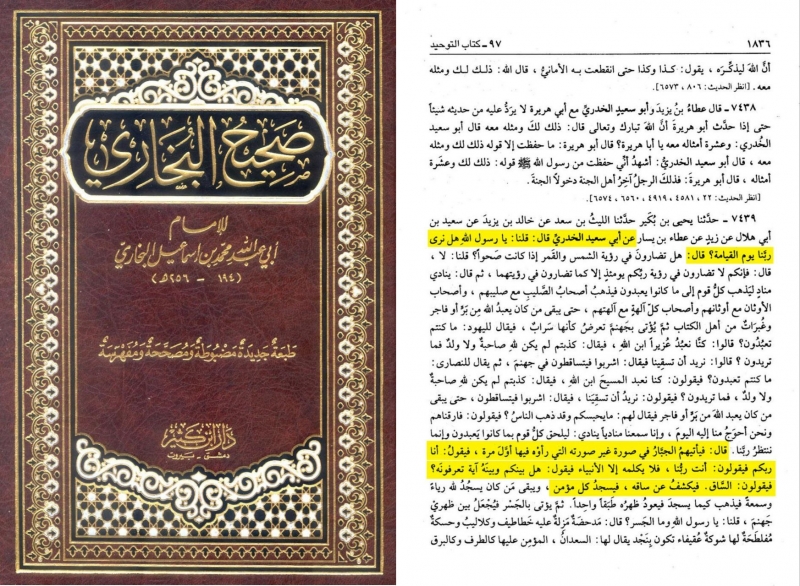 صحيح البخاري
للإمام
أبي عبد الله محمد بن اسماعيل البخاري
(١٩٤ - ٢٥٦ هـ)
طبعة جديدة مضبوطة ومصححة ومفهرسة
دار ابن كثير
دمشق - بيروت
١٨٣٦
٩٧ - كتاب التوحيد
أنَّ اللهَ ليذكرَه ، يقول: كذا وكذا حتى انقطعت به الأمانيُّ ، قال الله: ذلك لك ومثله
معه . [انظر الحديث: ٨٠٦ ، ٦٥٧٣].
٧٤٣٨ - قال عطاءُ بنُ يزيدَ وأبو سعيد الخدريُّ مع أبي هريرة لا يَرُدُّ عليه من حديثه شيئاً
حتى إذا حدَّث أبو هريرةَ أنَّ الله تبارك وتعالى قال: ذلك لك ومثله معه قال أبو سعيد
الخُدري: وعشرة أمثاله معه يا أبا هريرة؟ قال أبو هريرة: ما حفظت إلا قوله ذلك لك ومثله
معه ، قال أبو سعيد الخدريُّ: أشهدُ أنِّي حفظت من رسول الله ﷺ قوله: ذلك لك وعشرة
أمثاله ، قال أبو هريرة: فذلك الرجلُ آخِرُ أهل الجنة دخولاً الجنةَ .
[انظر الحديث: ٢٢ ، ٤٥٨١ ، ٤٩١٩ ، ٦٥٦٠ ، ٦٥٧٤].
٧٤٣٩ - حدَّثنا يحيى بن بُكَير حدَّثنا الليثُ بن سعد عن خالد بن يزيدَ عن سعيد بن
أبي هلال عن زيدٍ عن عطاء بن يسار عن أبي سعيدٍ الخدريِّ قال: قلنا: يا رسول الله هل نرى
ربَّنا يوم القيامة؟ قال: هل تضارونَ في رؤية الشمس والقمر إذا كانت صَحواً؟ قلنا: لا ،
قال: فإنكم لا تضارون في رؤية ربكم يومئذٍ إلا كما تضارون في رؤيتهما ، ثم قال: ينادي
منادٍ ليَذهب كلُّ قوم إلى ما كانوا يعبدون فيذهبُ أصحابُ الصَّليب مع صليبهم ، وأصحاب
الأوثان مع أوثانهم وأصحاب كلِّ آلهةٍ مع آلهتهم ، حتى يبقى من كان يعبدُ الله مِن بَرٍّ أو فاجر
وغُبَّراتٌ من أهل الكتاب ثمَّ يُؤتى بجَهنمَ تعرضُ كأنها سَرابٌ ، فيقال لليهود: ما كنتم
تعبُدون؟ قالوا: كنَّا نعبدُ عُزَيراً ابن الله ، فيقال: كذبتم لم يكن لله صاحبةٌ ولا ولدٌ فما
تريدون ؟ قالوا: نريد أن تسقِينا فيقال: اشربوا فيتساقطون في جهنمَ ، ثم يقال للنصارى:
ما كنتم تعبدون؟ فيقولون: كنا نعبد المسيحَ ابن الله ، فيقال: كذبتم لم يكن لله صاحبةٌ
ولا ولدٌ ، فما تريدون ؟ فيقولون: نريدُ أن تسقِينا ، فيقال: اشربوا فيتساقطون ، حتى يبقى
من كان يعبد الله من بَرٍّ أو فاجر فيقال لهم: مايحبسكم وقد ذهب الناسُ؟ فيقولون: فارقناهم
ونحن أحوَجُ منا إليه اليومَ ، وإنا سمعنا منادياً ينادي: ليلحق كلُّ قوم بما كانوا يَعبدون وإنما
ننتظرُ ربَّنا. قال: فيأتيهمُ الجبَّارُ في صورة غير صورته التي رأوْه فيها أوَّلَ مرة ، فيقولُ: أنا
ربكم فيقولون: أنت ربُّنا ، فلا يكلمه إلا الأنبياء فيقول: هل بينكم وبينَهُ آية تعرفونَه؟
فيقولون: السَّاق. فيكشفُ عن ساقه ، فيسجدُ كل مؤمن ، ويبقى مَن كان يسجُد لله رياءً
وسمعةً فيذهب كيما يسجد فيعودُ ظهرُه طَبَقاً واحداً. ثمَّ يؤتى بالجَسر فيُجعَلُ بين ظهريْ
جَهنمَ ، قلنا: يا رسولَ الله وما الجَسرُ؟ قال: مَدحَضةٌ مَزلة عليه خطاطيف وكلاليبُ وحسكةٌ
مُفلطَحةٌ لها شوكةٌ عُقيفاء تكون بنَجْد يقال لها: السعدانُ ، المؤمِن عليها كالطرف وكالبرق